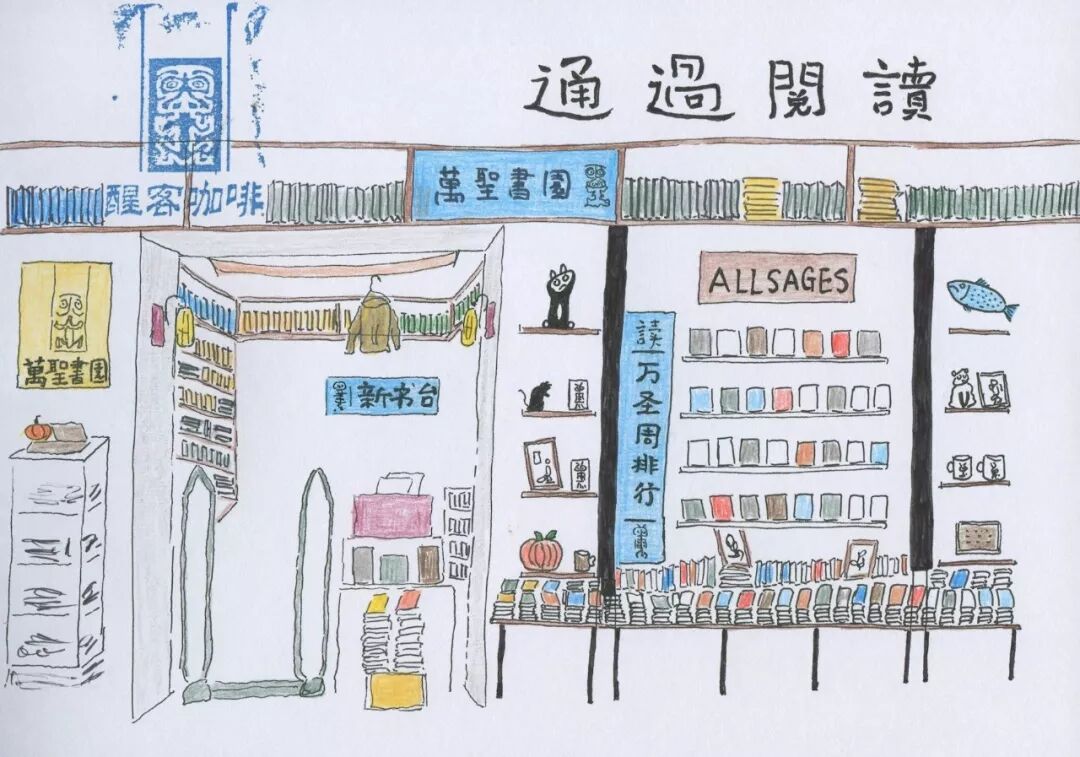 通過閱讀
醒客咖啡
萬聖書園
ALLSAGES
萬聖書園
新书台
读一万圣周排行一